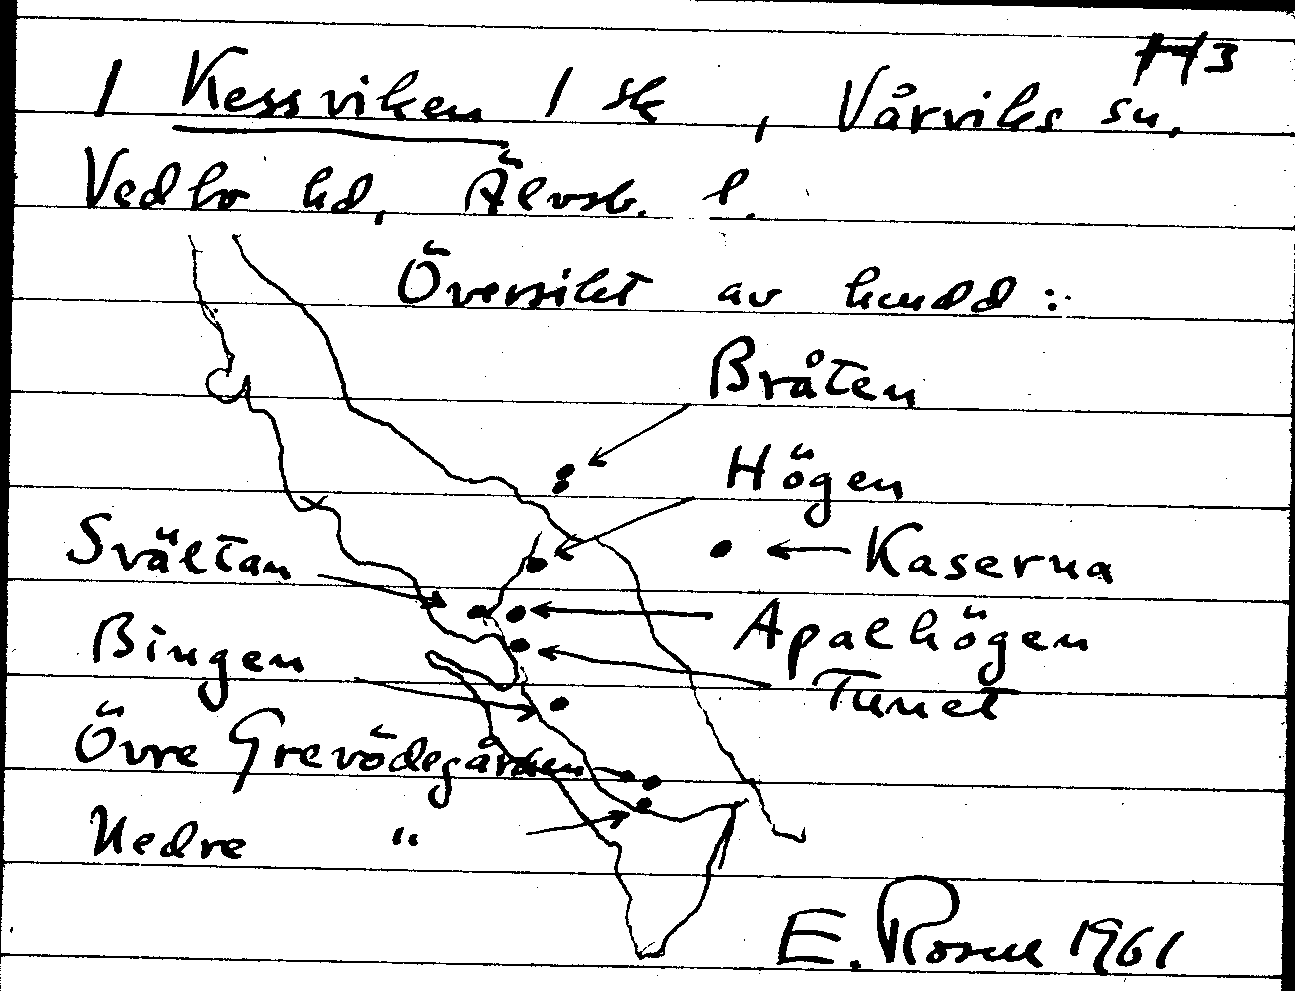 1 Kessviken 1 sk, Vårviks sn,
Vedbo hd, Älvsb. l.
Översikt av hmdd:
Bråten
Högen
Svältan
Kaserna
Bingen
Apalhögen
Tunet
Övre Grevödegården
Nedre "
E. Rosell 1961